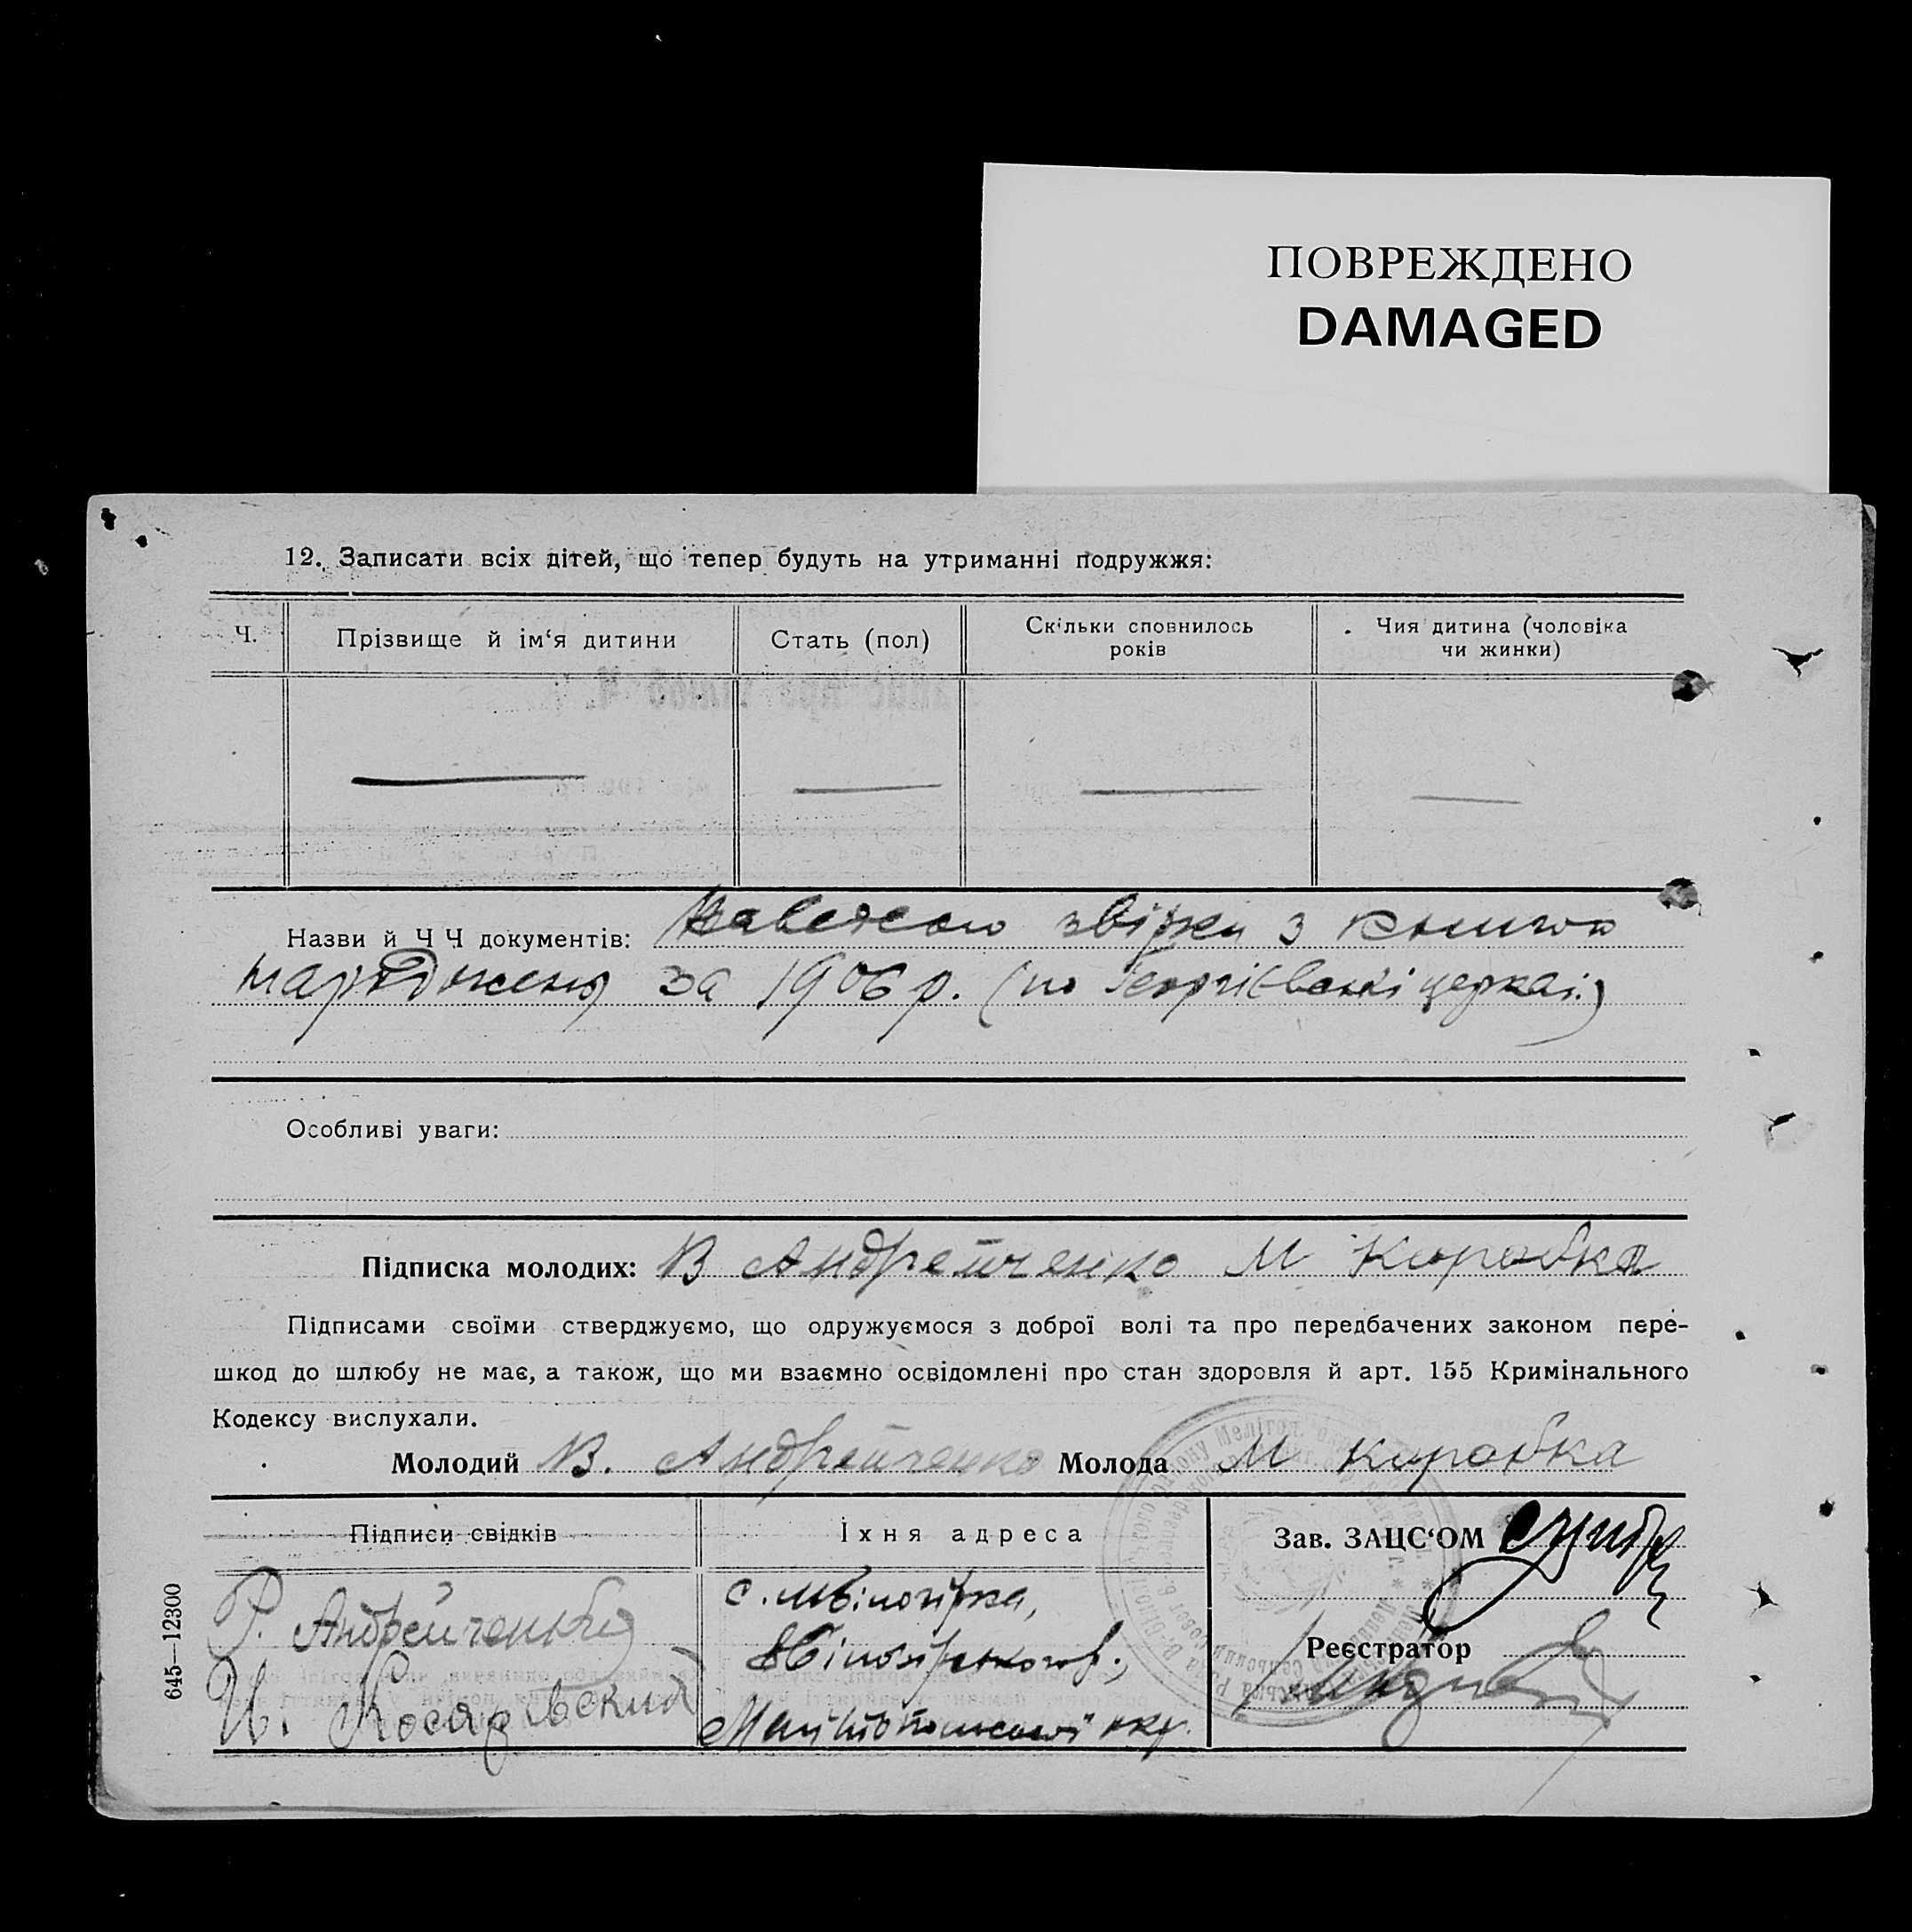 ПОВРЕЖДЕНО
DAMAGED
12. Записати всіх дітей, що тепер будуть на утриманні подружжя:
Ч. Прізвище й ім‘я дитини Стать (пол) Скільки сповнилось років Чия дитина (чоловіка чи жинки)
Назви й Ч Ч документів: звірки з книгою
народженя за 1906 р. (по Георгієвські церкві)
Особливі уваги:
Підписка молодих: В Андрейченко М Коробка
Підписами своїми стверджуємо, що одружуємося з доброї волі та про передбачених законом пере-
шкод до шлюбу не має, а також, що ми взаємно освідомлені про стан здоровля й арт. 155 Кримінального
Кодексу вислухали.
Молодий В. Андрейченко Молода М Коробка
Підписи свідків Їхня адреса Зав. ЗАЦС‘ОМ
Р. Андрейченко с. Білогірка,
Реєстратор
И. Косаровский окр.
645—12300